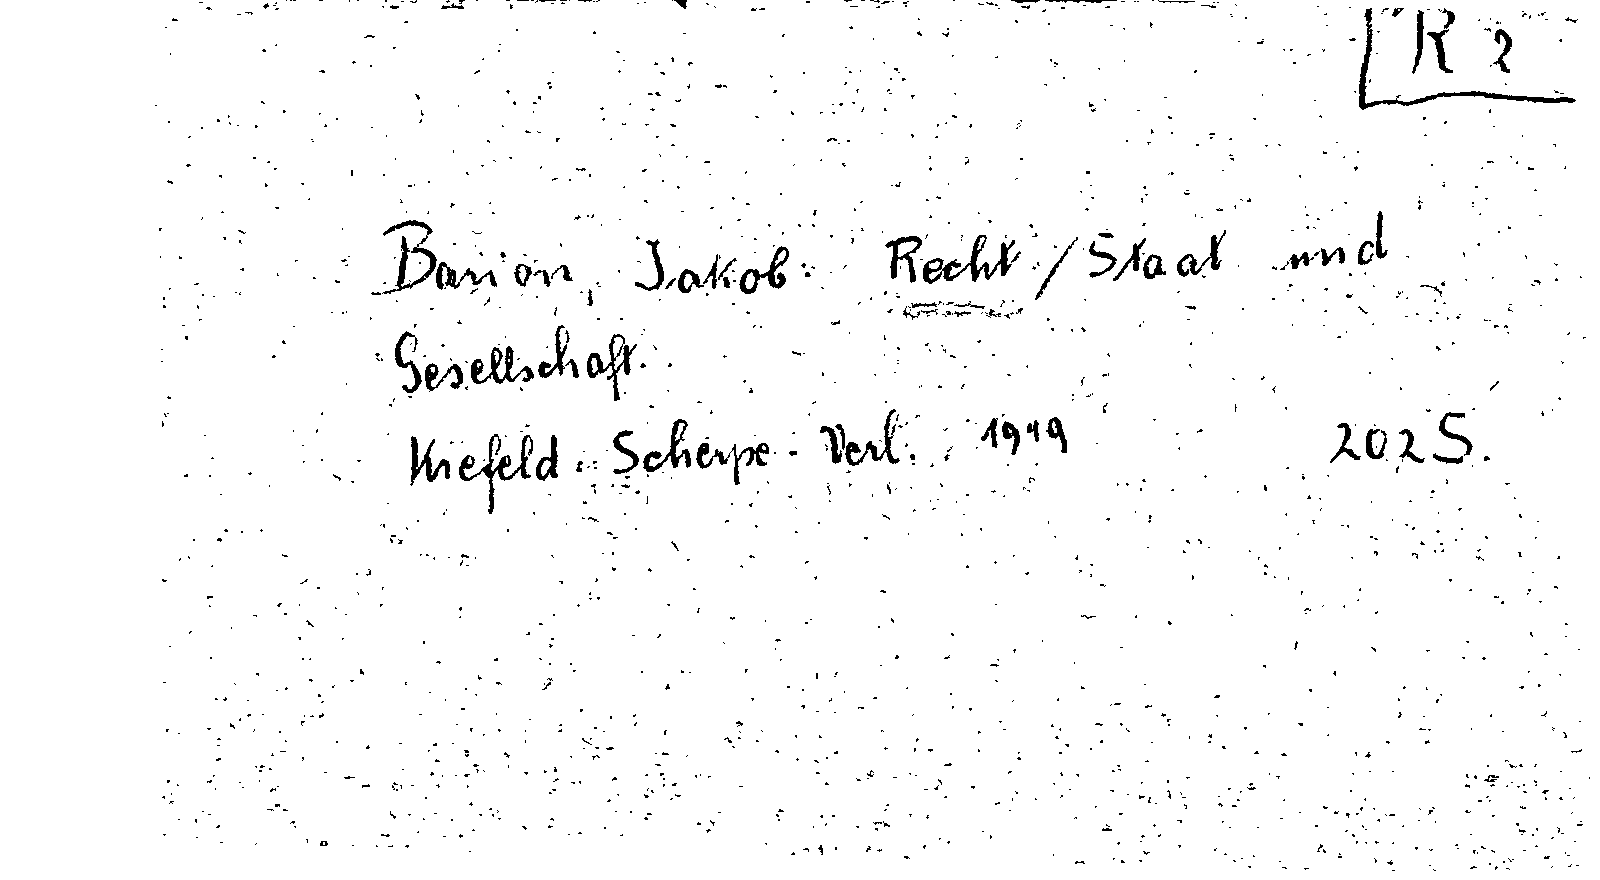 R 2
Barion, Jakob: Recht / Staat und
Gesellschaft.
Krefeld: Scherpe-Verl. 1949 202 S.